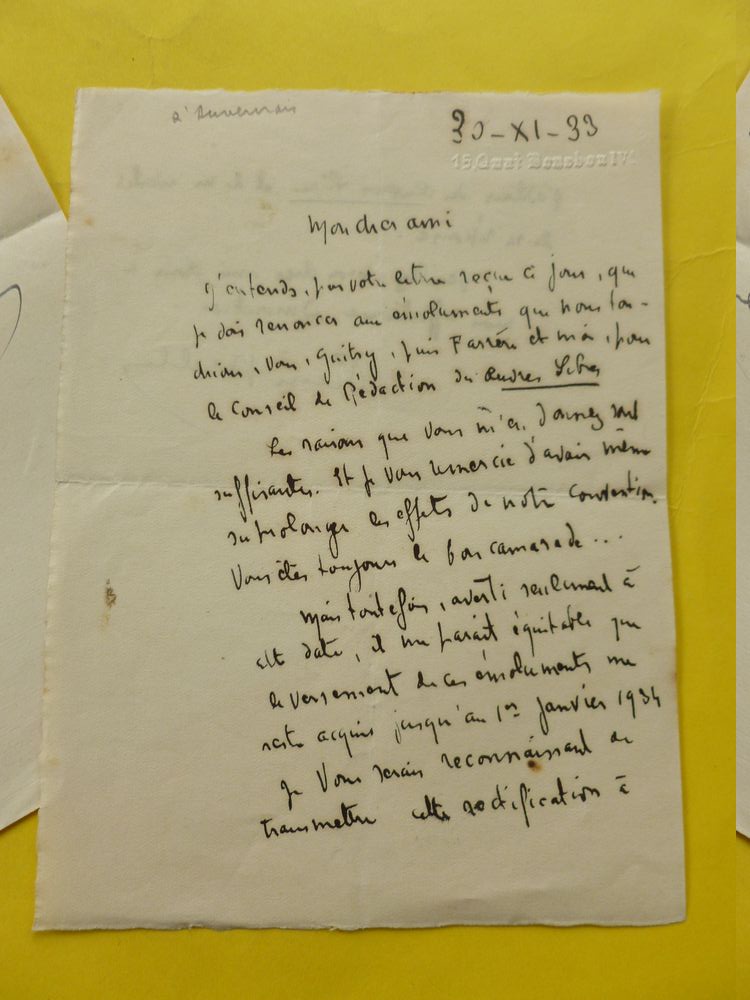 d'Auvernois
30-XI-33
15, Quai Bourbon IVe
Mon cher ami
J'entends, par votre lettre reçue ce jour, que
je dois renoncer aux émoluments que nous tou-
chions, vous, Guitry, puis Farrère et moi, pour
le Conseil de Rédaction des Œuvres Libres
Les raisons que vous m'en donnez sont
suffisantes. Et je vous remercie d'avoir même
su prolonger les effets de notre convention.
Vous êtes toujours le bon camarade...
Mais toutefois, averti seulement à
cette date, il me paraît équitable que
le versement de ces émoluments me
reste acquis jusqu'au 1er Janvier 1934
Je vous serais reconnaissant de
transmettre cette rectification à